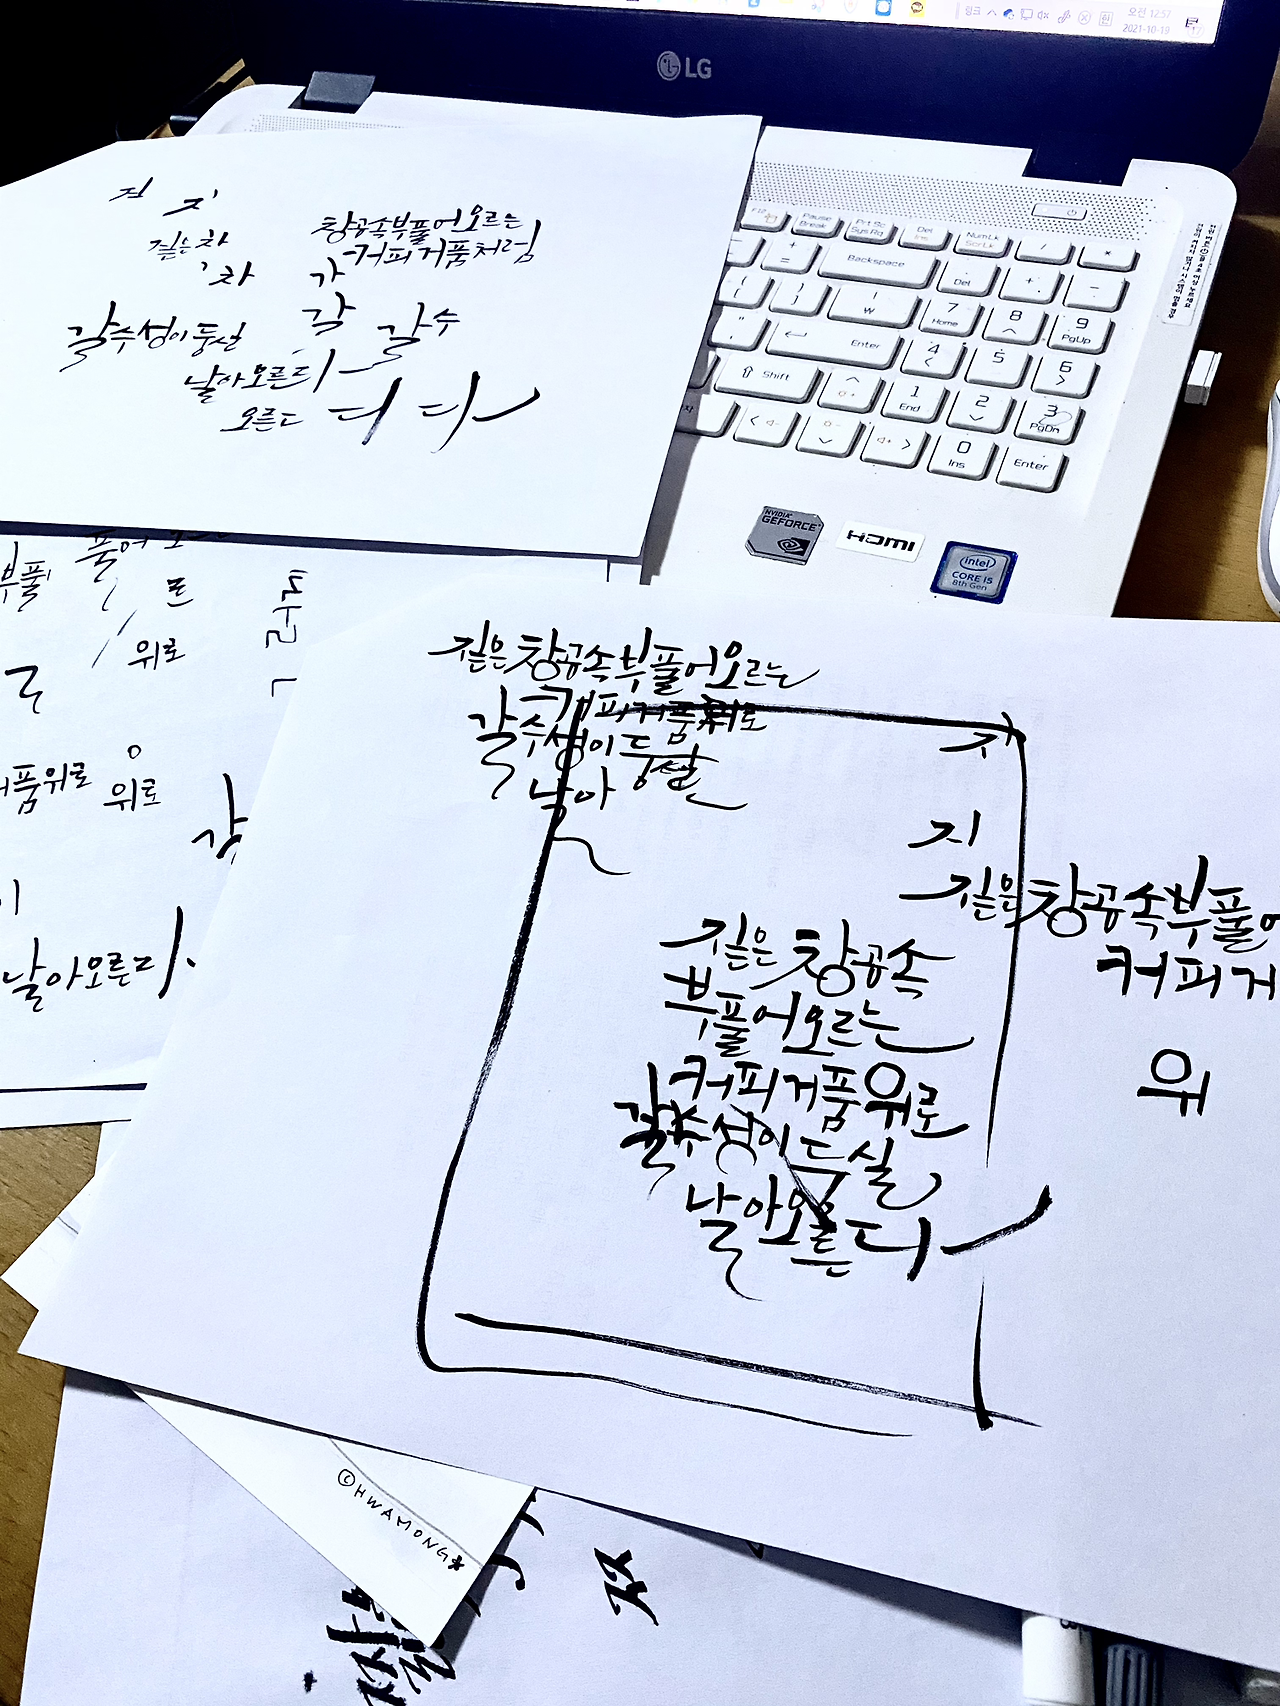 링크
오전 12:57
2021-10-19
LG
지
짙은 창
차
창공속 부풀어오르는
커피거품처럼
가
갈
갈수
갈수성이 둥실
날아오른다
오른다
다 다
Pause
Break
Prt Sc
Sys Rq
Del
Ins
Num Lk
Scr Lk
/
*
Backspace
Del
+
-
₩
7
Home
8
9
PgUp
Enter
4
5
6
Shift
1
End
2
3
PgDn
0
Ins
Enter
NVIDIA
GEFORCE
HDMI
intel
CORE i5
8th Gen
부풀
풀어
르
위로
품위로
위로
날아오른다.
짙은 창공속 부풀어오르는
커피거품위로
갈수성이 둥실
날아
지
짙은 창공속 부풀어
커피거
위
짙은 창공속
부풀어오르는
커피거품위로
갈수성이 둥실
날아오른다
©HWAMONG*